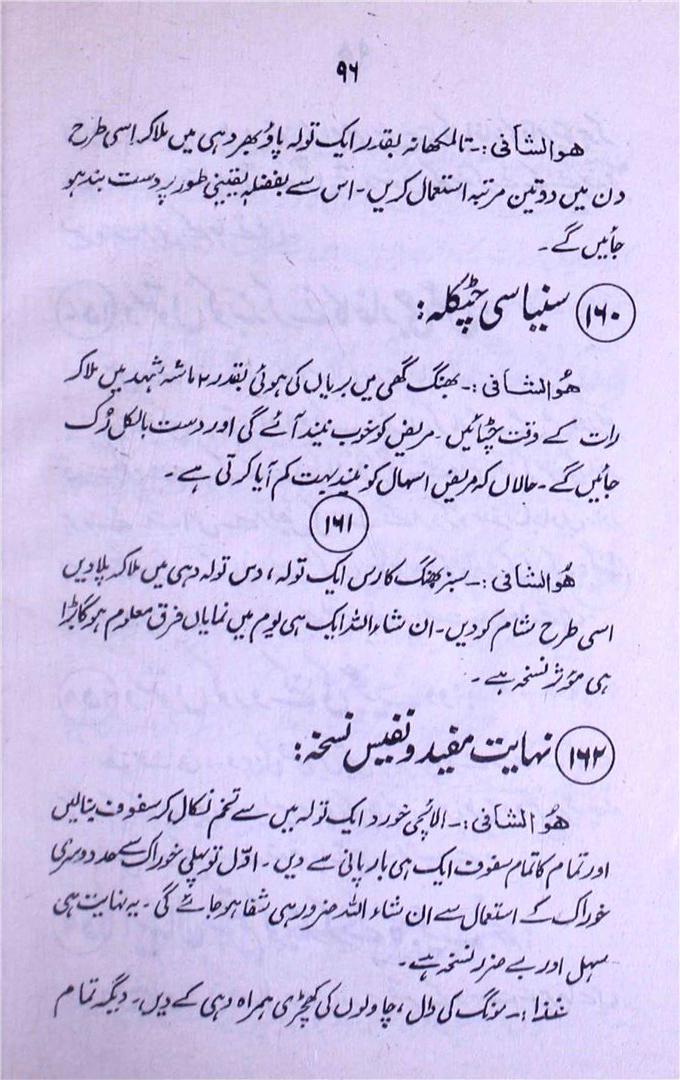 ۹۶
ھوالشافی :۔ تالمکھانہ بقدر ایک تولہ پاؤ بھر دہی میں ملا کر اسی طرح
دن میں دو تین مرتبہ استعمال کریں۔ اس سے بفضلہٖ یقینی طور پر دست بند ہو
جائیں گے۔
۱۶۰ سنیاسی چٹکلہ :
ھُوالشافی :۔ بھنگ گھی میں بریاں کی ہوئی بقدر ۲ ماشہ شہد میں ملا کر
رات کے وقت چٹائیں۔ مریض کو خوب نیند آئے گی اور دست بالکل رُک
جائیں گے۔ حالاں کہ مریض اسہال کو نیند بہت کم آیا کرتی ہے۔
۱۶۱
ھُوالشافی :۔ سبز بھنگ کا رس ایک تولہ، دس تولہ دہی میں ملا کر پلا دیں
اسی طرح شام کو دیں۔ ان شاء اللہ ایک ہی یوم میں نمایاں فرق معلوم ہو گا بڑا
ہی مؤثر نسخہ ہے۔
۱۶۲ نہایت مفید و نفیس نسخہ :
ھُوالشافی :۔ الائچی خورد ایک تولہ میں سے تخم نکال کر سفوف بنالیں
اور تمام کا تمام سفوف ایک ہی بار پانی سے دیں۔ اوّل تو پہلی خوراک سے حد دوسری
خوراک کے استعمال سے ان شاء اللہ ضرور ہی شفا ہو جائے گی۔ یہ نہایت ہی
سہل اور بے ضرر نسخہ ہے۔
غذا :۔ مونگ کی دال، چاولوں کی کھچڑی ہمراہ دہی کے دیں۔ دیگر تمام